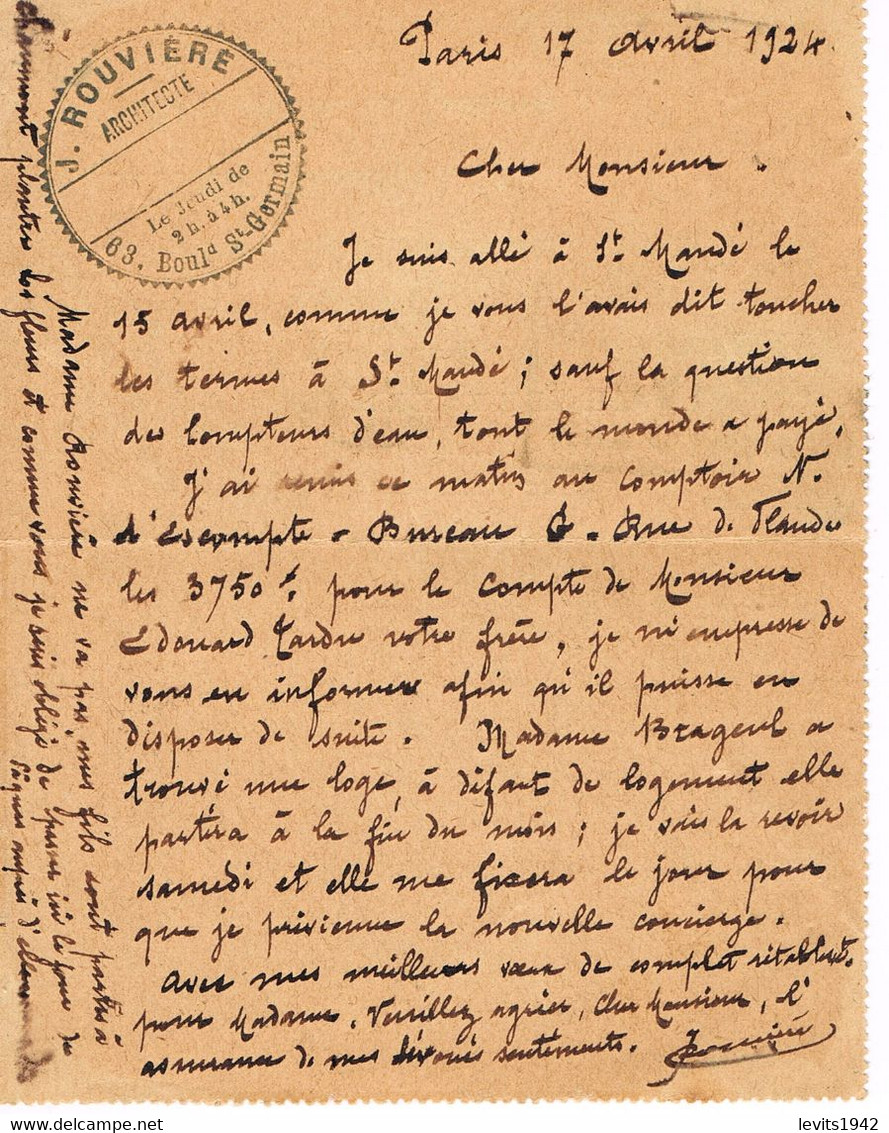 J. ROUVIÈRE
ARCHITECTE
Le Jeudi de
2 h. à 4 h.
63, Bould St-Germain
Paris 17 Avril 1924.
Cher Monsieur.
Je suis allé à St. Mandé le
15 avril, comme je vous l'avais dit toucher
les termes à St. Mandé; sauf la question
des compteurs d'eau, tout le monde a payé,
J'ai remis ce matin au Comptoir N.
d'Escompte - Bureau G. Rue de Flandre
les 3750 f. pour le compte de Monsieur
Edouard Tardu votre frère, je m'empresse de
vous en informer afin qu'il puisse en
disposer de suite. Madame Brageul a
trouvé une loge, à défaut de logement elle
partira à la fin du mois; je vais la revoir
samedi et elle me fixera le jour pour
que je prévienne la nouvelle concierge.
Avec mes meilleurs vœux de complet rétablisst.
pour Madame, Veuillez agréer, Cher Monsieur, l'
assurance de mes dévoués sentiments. Rouvière
Madame Rouvière ne va pas, mes fils sont partis à
Chaumont planter les fleurs et comme vous je suis obligé de passer ici le jour de
Pâques auprès d'elle
levits1942